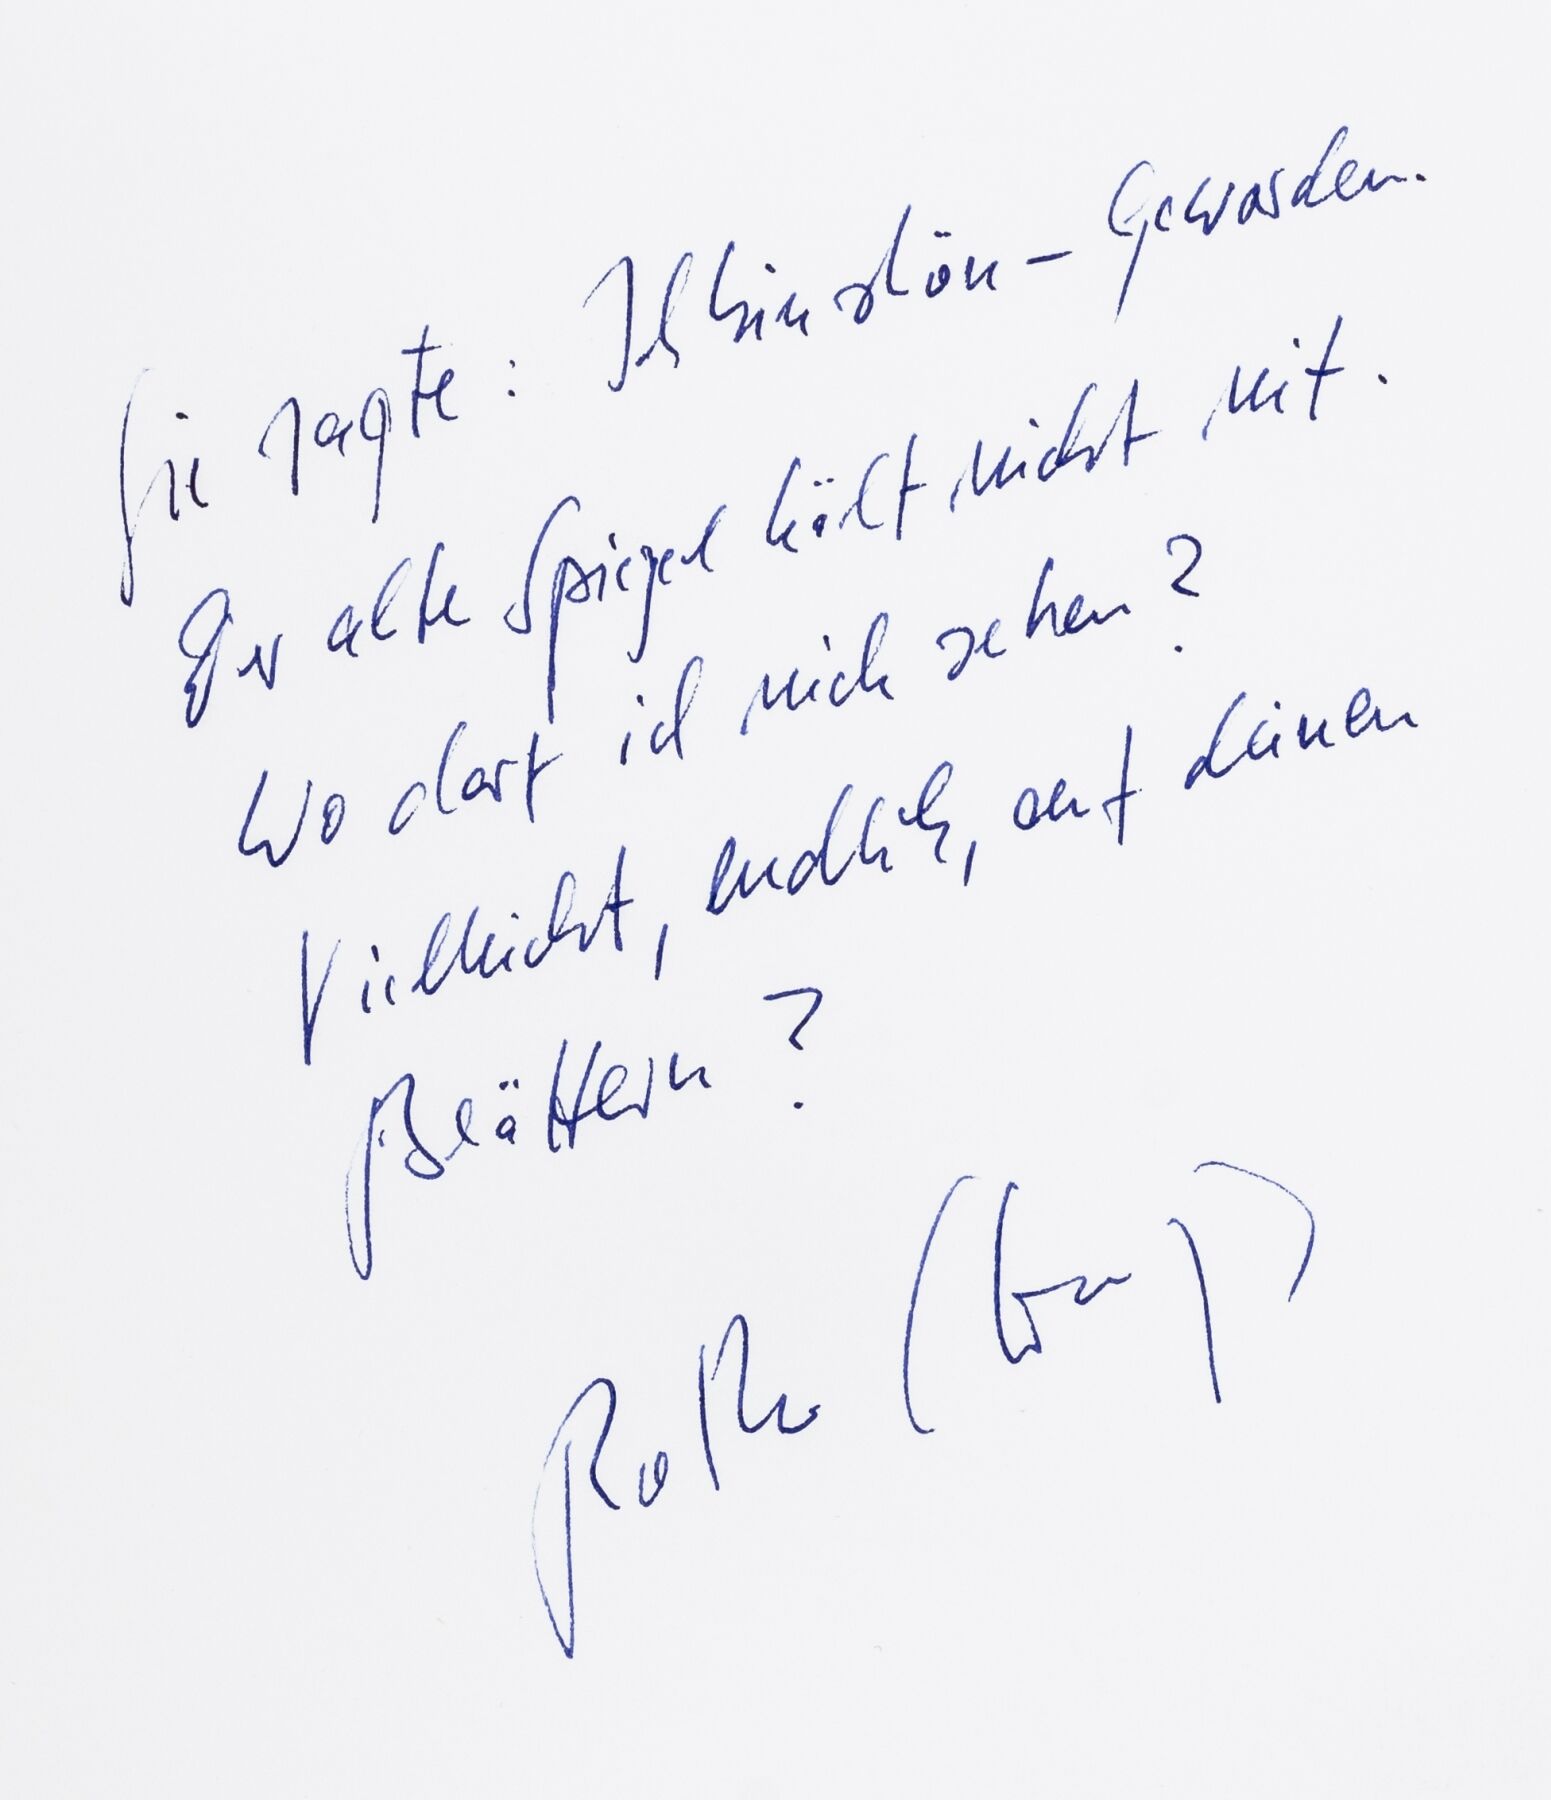 Sie sagte: Ich bin schön – Geworden.
Der alte Spiegel hält nicht mit.
Wo darf ich mich sehen?
Vielleicht, endlich, auf deinen
Blättern?